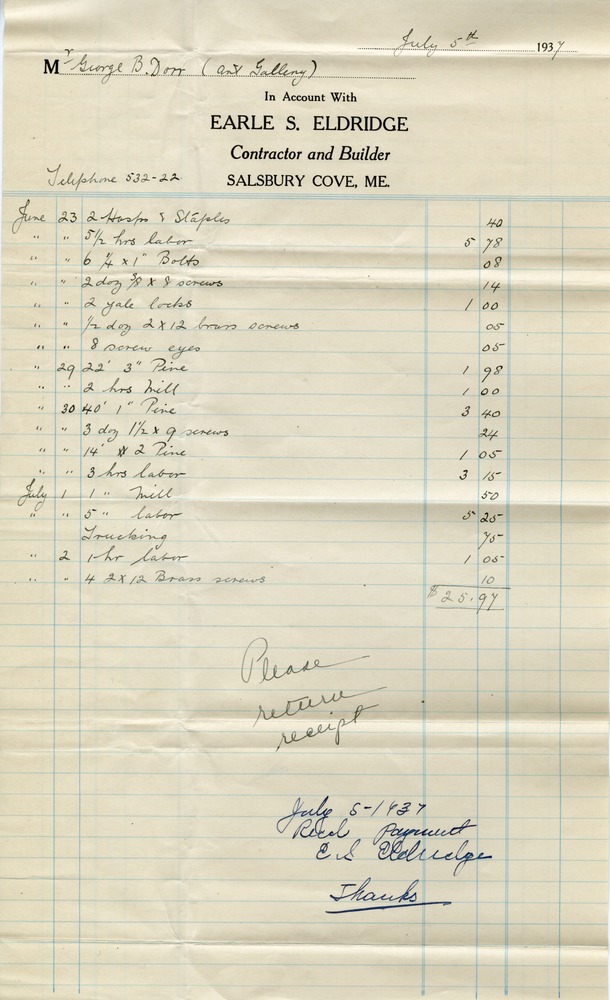 July 5th 1937
Mr George B. Dorr (art Gallery)
In Account With
EARLE S. ELDRIDGE
Contractor and Builder
Telephone 532-22
SALSBURY COVE, ME.
June 23 2 Hasps & Staples 40
" " 5 1/2 hrs labor 5 78
" " 6 1/4 x 1" Bolts 08
" " 2 doz 5/8 x 8 screws 14
" " 2 yale locks 1 00
" " 1/2 doz 2 x 12 brass screws 05
" " 8 screw eyes 05
" 29 22' 3" Pine 1 98
" " 2 hrs Mill 1 00
" 30 40' 1" Pine 3 40
" " 3 doz 1 1/2 x 9 screws 24
" " 14' # 2 Pine 1 05
" " 3 hrs labor 3 15
July 1 1 " Mill 50
" " 5 " labor 5 25
Trucking 75
" 2 1 hr labor 1 05
" " 4 2 x 12 Brass screws 10
$25.97
Please
return
receipt
July 5-1937
Recd Payment
E S Eldridge
Thanks